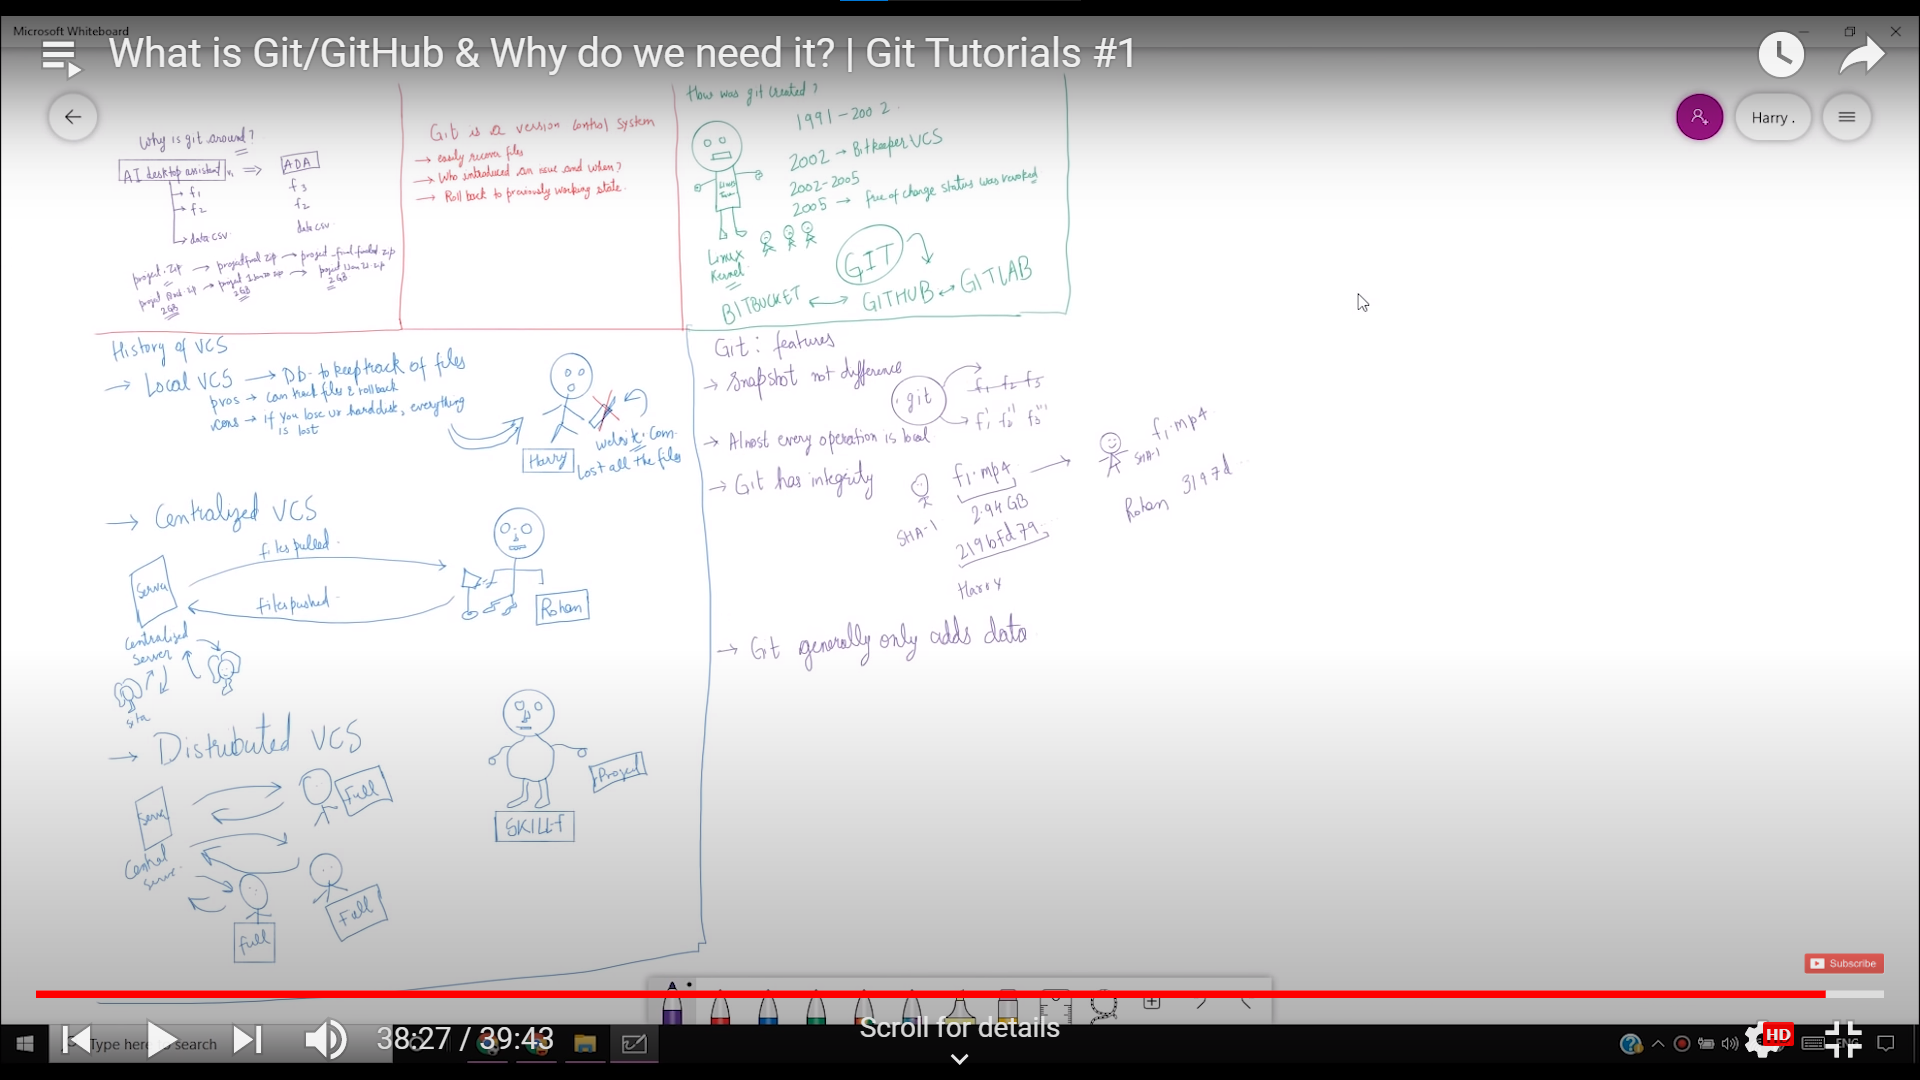 Microsoft Whiteboard
What is Git/GitHub & Why do we need it? | Git Tutorials #1
Harry .
Why is git around?
AI desktop assistant v1 ⇒ ADA
→ f1
→ f2
→ data csv
f3
f2
data csv
project.zip → projectfinal zip → project_final
project → project → project
2GB
2GB
2GB
Git is a version control system
→ easily recover files
→ Who introduced an issue and when?
→ Roll back to previously working state.
How was git created?
1991-2002.
2002 → Bitkeeper VCS
2002-2005
2005 → free of charge status was revoked
Linux
Kernel
GIT
BITBUCKET ↔ GITHUB ↔ GITLAB
History of VCS
→ Local VCS → Db- to keep track of files
pros → can track files & rollback
cons → if you lose ur hard disk, everything
is lost
Harry
website.com
Lost all the files
→ Centralized VCS
files pulled
Server
files pushed
Rohan
Centralised
Server
Sita
→ Distributed VCS
Server
Full
Central
Server
Full
Full
Project
SKILLF
Git: features
→ Snapshot not difference
git
f1 f2 f3
f1' f2'' f3'''
→ Almost every operation is local
→ Git has integrity
f1.mp4 →
2.94 GB
SHA-1
219bfd79..
Harry
f1.mp4
SHA-1
Rohan 3197d..
→ Git generally only adds data
Subscribe
38:27 / 39:43
Scroll for details
HD
Type here to search
ENG